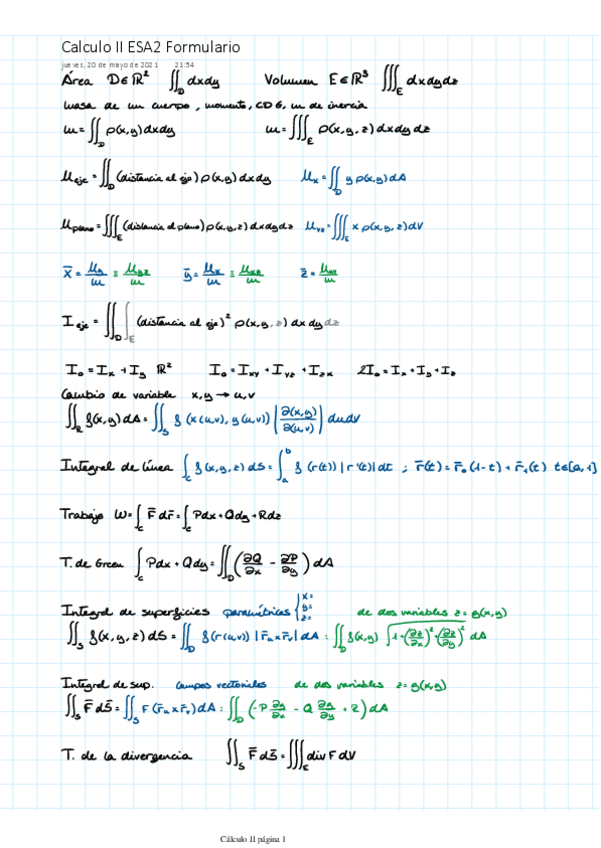 Calculo II ESA2 Formulario
jueves, 20 de mayo de 2021 21:54
Área D∈ℝ² ∬_D dxdy Volumen E∈ℝ³ ∭_E dxdydz
masa de un cuerpo, momento, CDG, m de inercia
m = ∬_D ρ(x,y)dxdy m = ∭_E ρ(x,y,z)dxdydz
M_eje = ∬_D (distancia al eje) ρ(x,y) dxdy M_x = ∬_D y ρ(x,y) dA
M_plano = ∭_E (distancia al plano) ρ(x,y,z) dxdydz M_yz = ∭_E x ρ(x,y,z) dV
x̄ = M_y/m = M_yz/m ȳ = M_x/m = M_xz/m z̄ = M_xy/m
I_eje = ∬_D ∫_E (distancia al eje)² ρ(x,y,z) dx dy dz
I₀ = I_x + I_y ℝ² I₀ = I_xy + I_yz + I_zx 2I₀ = I_x + I_y + I_z
Cambio de variable x,y → u,v
∬_R f(x,y) dA = ∬_S f(x(u,v), y(u,v)) |∂(x,y)/∂(u,v)| dudv
Integral de línea ∫_C f(x,y,z) dS = ∫_a^b f(r(t)) |r'(t)| dt ; r̄(t) = r̄₀(1-t) + r̄₁(t) t∈[0,1]
Trabajo W = ∫_C F̄ dr̄ = ∫_C Pdx + Qdy + Rdz
T. de Green ∫_C Pdx + Qdy = ∬_D (∂Q/∂x - ∂P/∂y) dA
Integral de superficies paramétricas { x= y= z= de dos variables z = g(x,y)
∬_S f(x,y,z) dS = ∬_D f(r(u,v)) |r̄_u x r̄_v| dA : ∬_D f(x,y) √(1+(∂z/∂x)²+(∂z/∂y)²) dA
Integral de sup. campos vectoriales de dos variables z = g(x,y)
∬_S F̄ dS̄ = ∬_S F (r̄_u x r̄_v) dA : ∬_D (-P ∂g/∂x - Q ∂g/∂y + R) dA
T. de la divergencia ∬_S F̄ dS̄ = ∭_E div F dV
Cálculo II página 1